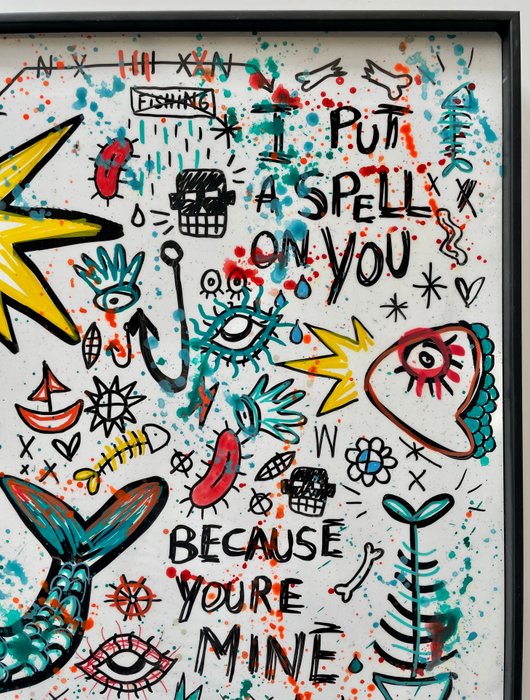 FISHING
I PUT
A SPELL
ON YOU
W
BECAUSE
YOURE
MINE